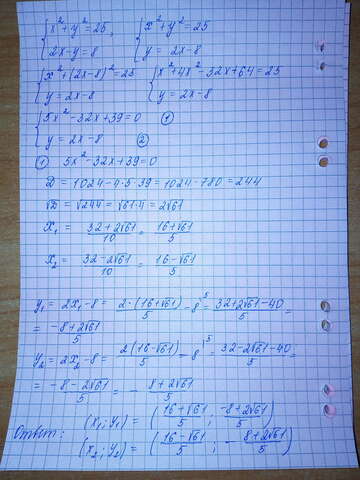 {x²+y²=25, {x²+y²=25
{2x-y=8 {y = 2x-8
{x²+(2x-8)²=25 {x²+4x²-32x+64=25
{y=2x-8 {y=2x-8
{5x²-32x+39=0 ①
{y = 2x-8 ②
① 5x²-32x+39=0
D = 1024-4·5·39=1024-780=244
√D = √244 = √61·4 = 2√61
x₁ = (32+2√61)/10 = (16+√61)/5
x₂ = (32-2√61)/10 = (16-√61)/5
y₁ = 2x₁-8 = 2·(16+√61)/5 - 8^5 = (32+2√61-40)/5 =
= (-8+2√61)/5
y₂ = 2x₂-8 = 2(16-√61)/5 - 8^5 = (32-2√61-40)/5 =
= (-8-2√61)/5 = - (8+2√61)/5
(x₁; y₁) = ((16+√61)/5 ; (-8+2√61)/5)
Ответ:
(x₂; y₂) = ((16-√61)/5 ; - (8+2√61)/5)